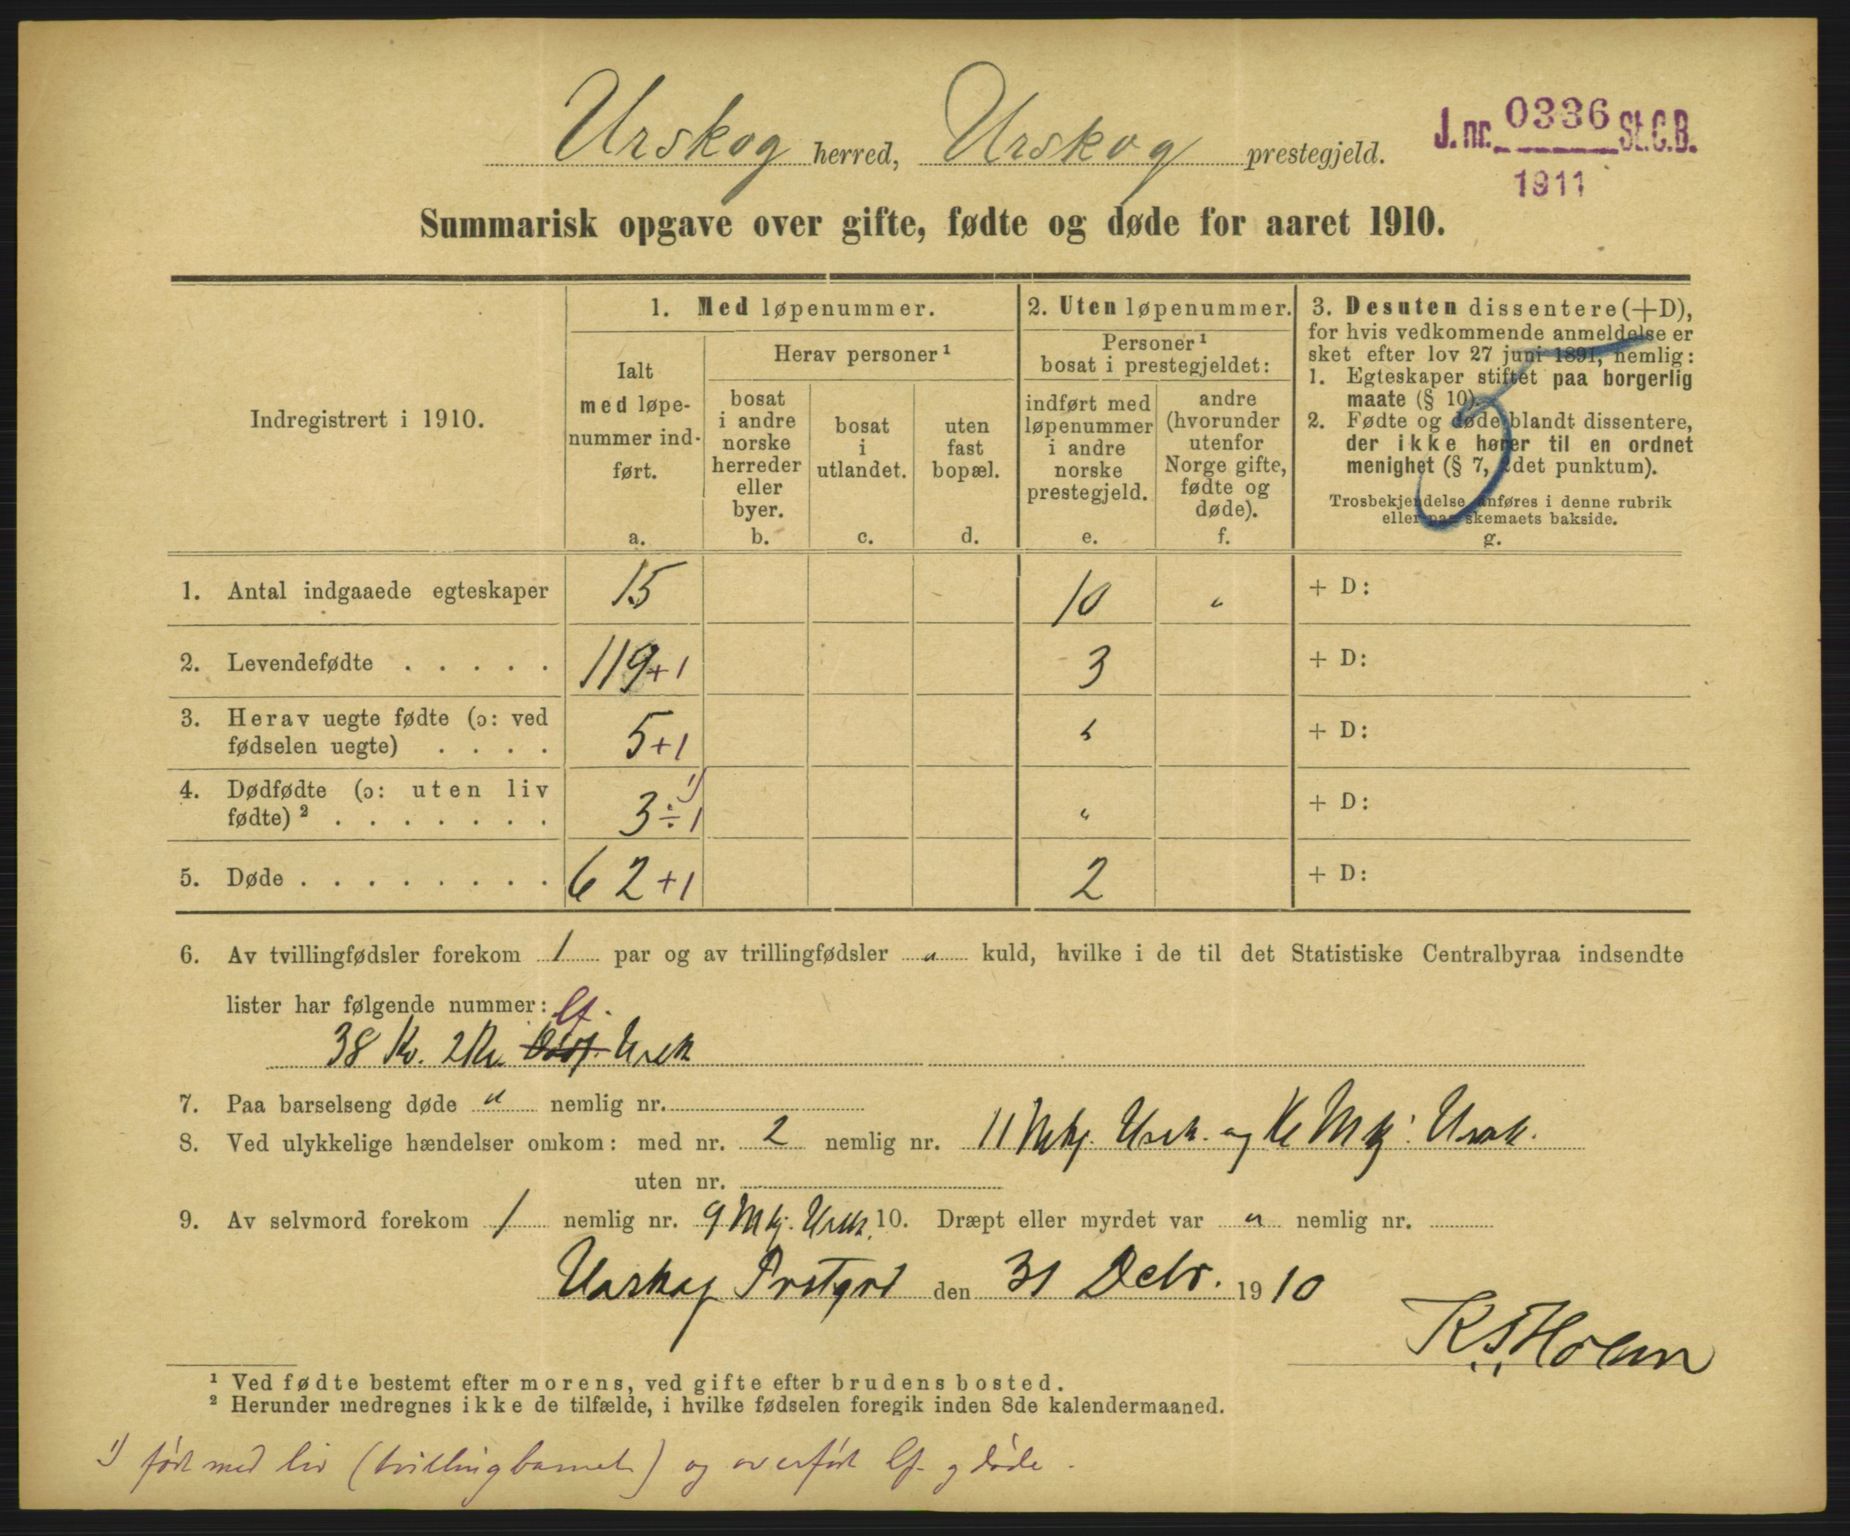 Urskog herred, Urskog prestegjeld.
J. nr. 0336 St. C. B.
1911
Summarisk opgave over gifte, fødte og døde for aaret 1910.
Indregistrert i 1910.
1. Med løpenummer.
Ialt med løpenummer indført.
a.
Herav personer¹
bosat i andre norske herreder eller byer.
b.
bosat i utlandet.
c.
uten fast bopæl.
d.
2. Uten løpenummer.
Personer¹ bosat i prestegjeldet:
indført med løpenummer i andre norske prestegjeld.
e.
andre (hvorunder utenfor Norge gifte, fødte og døde).
f.
3. Desuten dissentere (+D),
for hvis vedkommende anmeldelse er
sket efter lov 27 juni 1891, nemlig:
1. Egteskaper stiftet paa borgerlig
maate (§ 10).
2. Fødte og døde blandt dissentere,
der ikke hører til en ordnet
menighet (§ 7, 2det punktum).
Trosbekjendelse anføres i denne rubrik
eller paa skemaets bakside.
g.
1. Antal indgaaede egteskaper 15 10 " + D:
2. Levendefødte . . . . . 119+1 3 + D:
3. Herav uegte fødte (ɔ: ved
fødselen uegte) . . . . 5+1 " + D:
4. Dødfødte (ɔ: uten liv
fødte)² . . . . . . . 3÷1 ¹) " + D:
5. Døde . . . . . . . . 62+1 2 + D:
6. Av tvillingfødsler forekom 1 par og av trillingfødsler " kuld, hvilke i de til det Statistiske Centralbyraa indsendte
lister har følgende nummer: Lf.
38 Kv. 2 Ursk
7. Paa barselseng døde " nemlig nr.
8. Ved ulykkelige hændelser omkom: med nr. 2 nemlig nr. 11 Mkj. Ursk. og Mkj. Ursk.
uten nr.
9. Av selvmord forekom 1 nemlig nr. 9 Mkj. Ursk. 10. Dræpt eller myrdet var " nemlig nr.
Urskog Prstgrd den 31 Decbr. 1910
K. S. Holm
¹ Ved fødte bestemt efter morens, ved gifte efter brudens bosted.
² Herunder medregnes ikke de tilfælde, i hvilke fødselen foregik inden 8de kalendermaaned.
¹) født med liv (tvillingbarnet) og overført Lf. g døde.